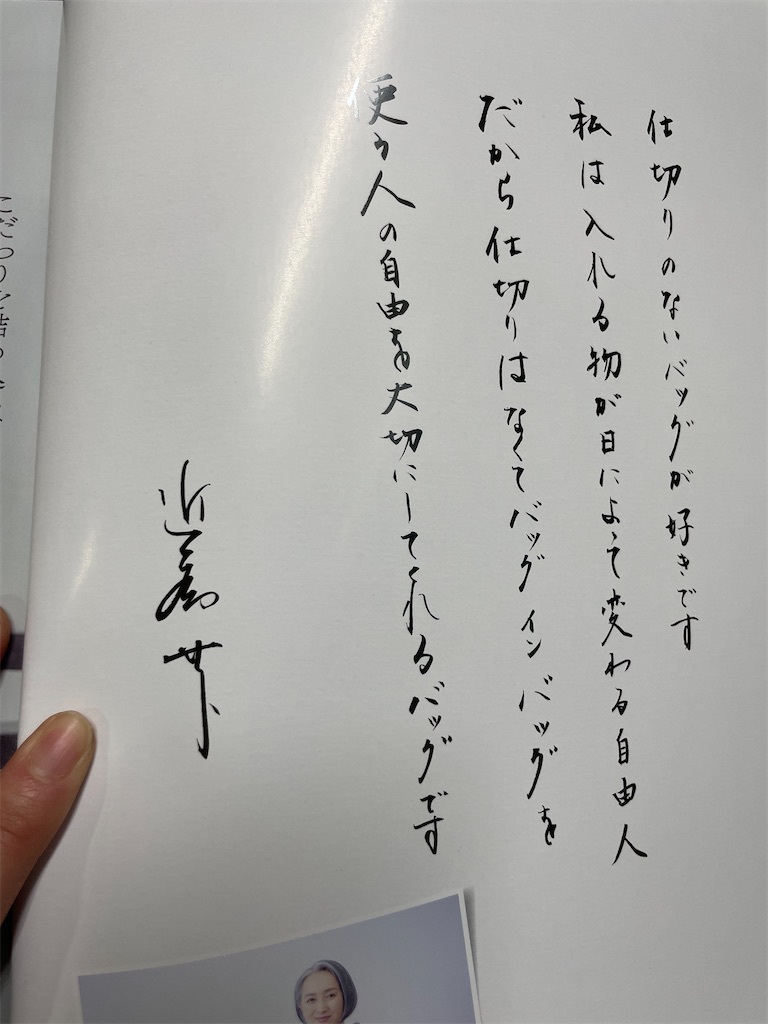 仕切りのないバッグが好きです
私は入れる物が日によって変わる自由人
だから仕切りはなくてバッグインバッグを
使う人の自由を大切にしてくれるバッグです
近藤サト
こだわりを詰め